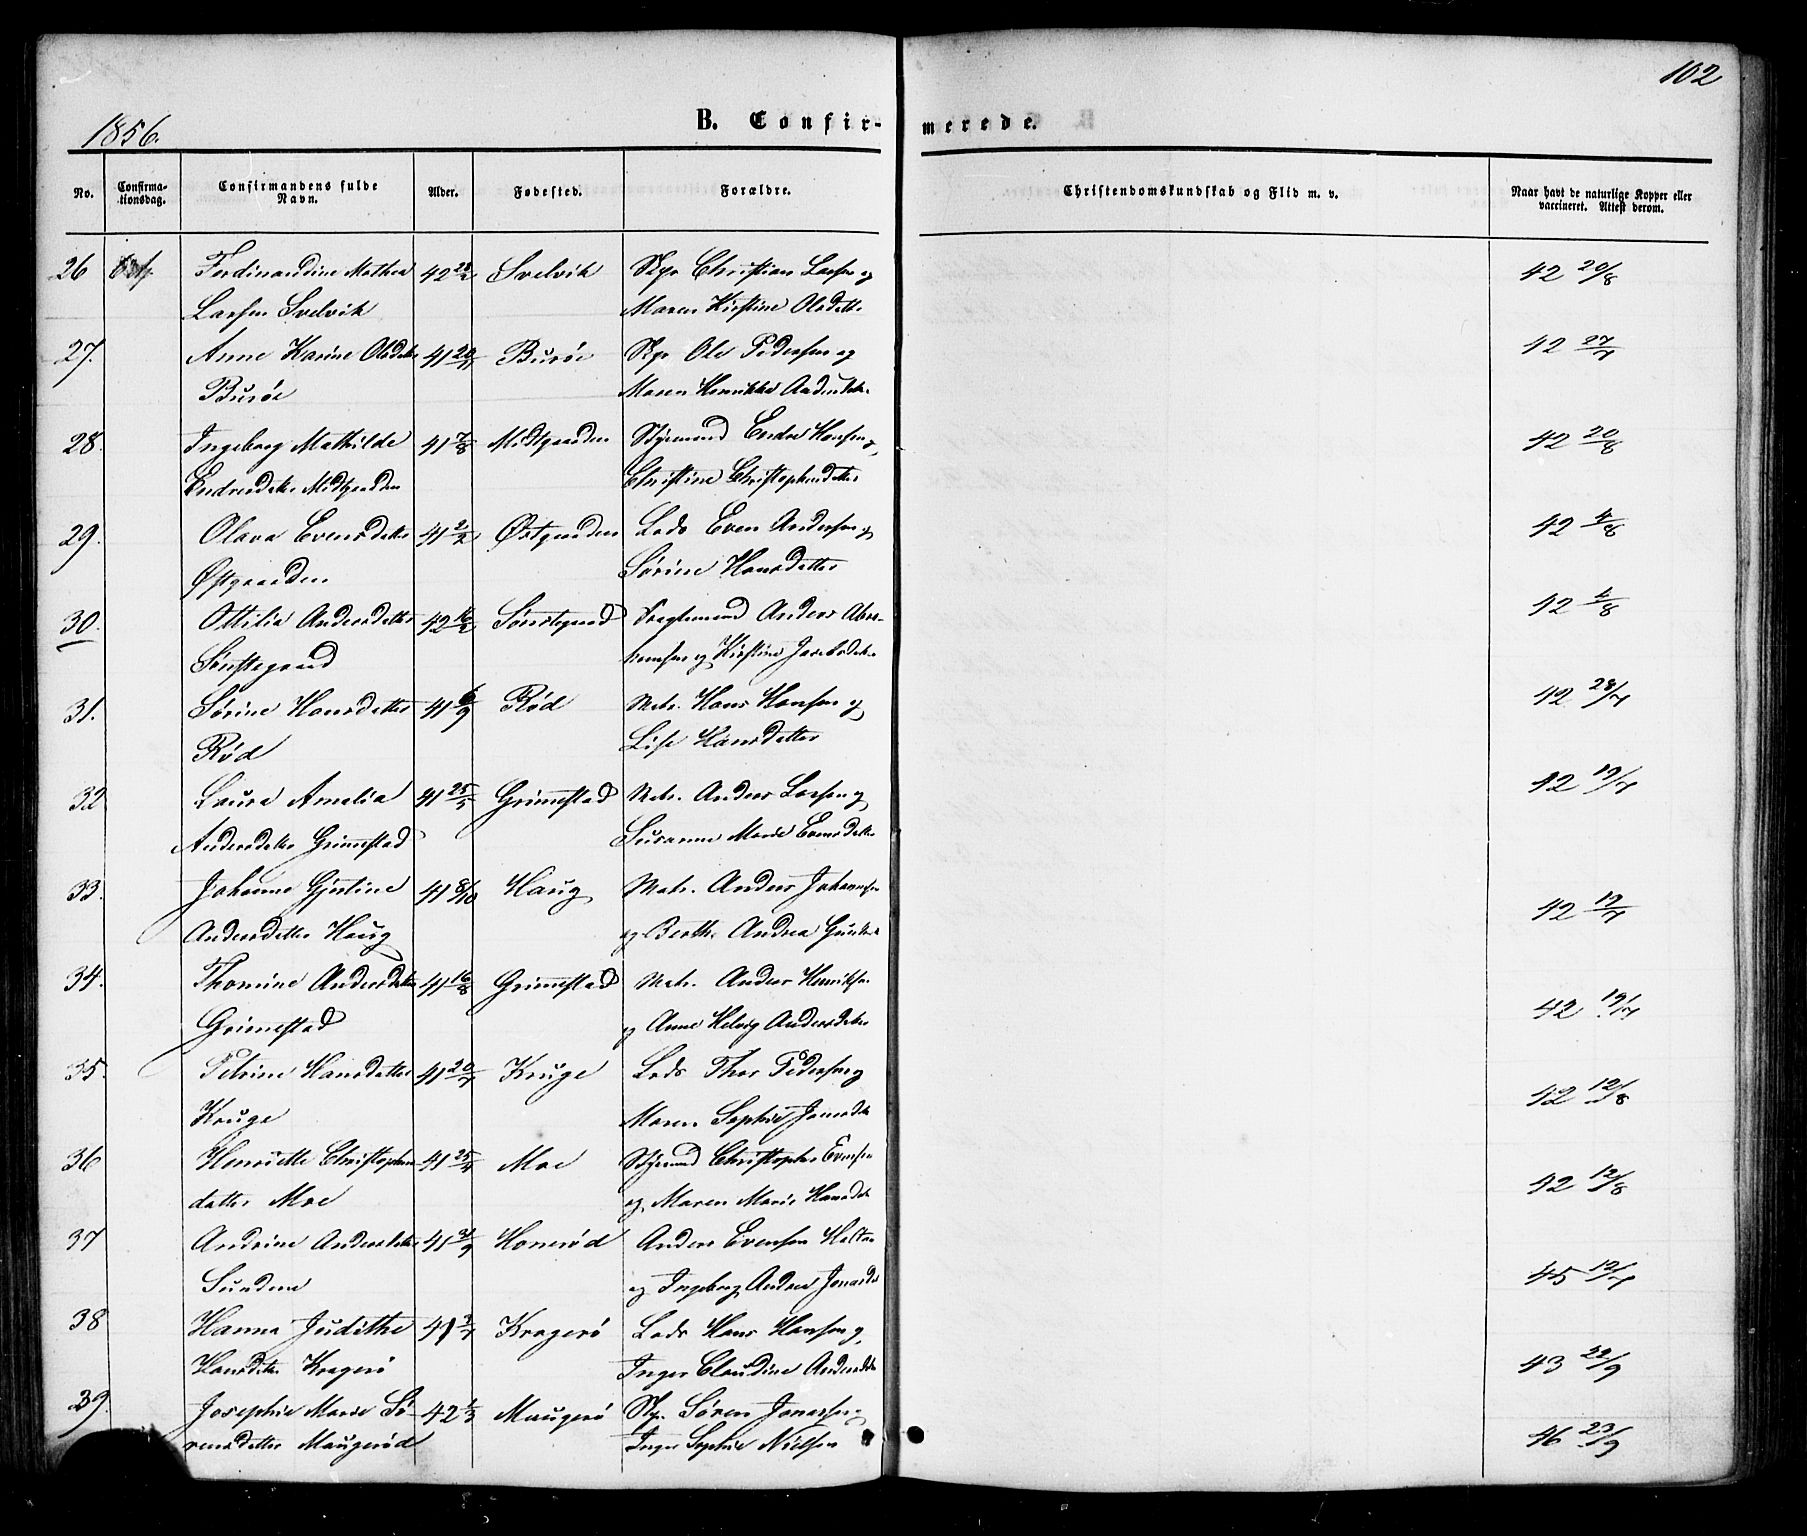 102
1856.
B. Confir- merede.
No.
Confirma-
tionsdag.
Confirmandens fulde
Navn.
Alder.
Fødested.
Forældre.
Christendomskundskab og Flid m. v.
Naar havt de naturlige Kopper eller
vaccineret. Attest derom.
26 Ferdinandine Mathea 42 Svelvik Skpr Christian Larsen og 42 20/8
Larsen Svelvik Maren Kirstine Olsdatter
27. Anne Karine Olsdatter 41 Burøe Skpr Ole Pedersen og 42 27/7
Burøe Maren Henrikke Andersdatter
28. Ingeborg Mathilde 41 7/8 Midtgaarden Styrmand Endre Hansen og 42 20/8
Endresdatter Midtgaarden Christine Christophersdatter
29. Olava Evensdatter 41 2/2 Østgaarden Lods Even Andersen og 42 4/8
Østgaarden Sørine Hansdatter
30. Ottilia Andersdatter 42 16/2 Sønstegaard Fragtemand Anders Abra- 42 4/8
Sønstegaard hamsen og Kirstine Jacobsdatter
31. Sørine Hansdatter 41 6/9 Rød Matr. Hans Hansen og 42 28/7
Rød Lise Hansdatter
32 Laura Amalia 41 25/5 Grimestad Matr. Anders Larsen og 42 19/7
Andersdatter Grimestad Susanne Marie Evensdatter
33. Johanne Gjurine 41 8/10 Haug Matr. Anders Johannesen 42 19/7
Andersdatter Haug og Berthe Andrea
34. Thomine Andersdatter 41 16/8 Grimestad Matr. Anders Henriksen 42 19/7
Grimestad og Anne Helvig Andersdatter
35. Petrine Hansdatter 41 20/7 Kruge Lods Thor Pedersen og 42 12/8
Kruge Maren Sophie
36 Henriette Christophers 41 25/4 Moe Styrmand Christopher Evensen 42 12/8
datter Moe og Maren Marie Hansdatter
37 Andrine Andersdatter 41 Honerød Anders Evensen Holtan 45 12/7
Sundene og Ingeborg Andrea
38 Hanna Judithe 41 3/7 Kragerø Lods Hans Hansen og 43 22/9
Hansdatter Kragerø Inger Claudine Andersdatter
39. Josephie Marie Sø- 42 1/3 Maugerø Skpr. Søren Jonassen og 46 23/9
rensdatter Maugerød Inger Sophie Nielsen